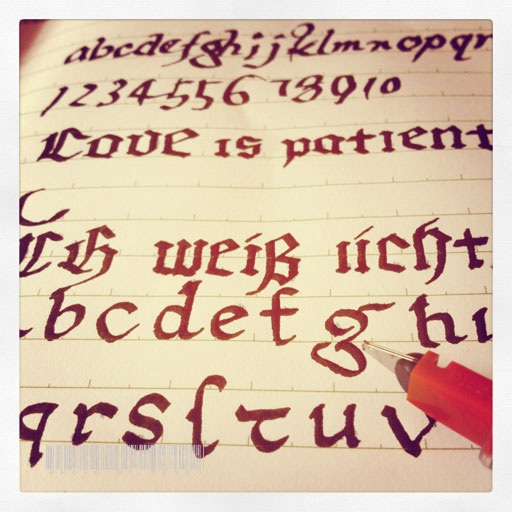 abcdefghijklmnopqr
1234556 78910
Love is patient
Ich weiß nicht.
abcdefghi
qrsſtuv